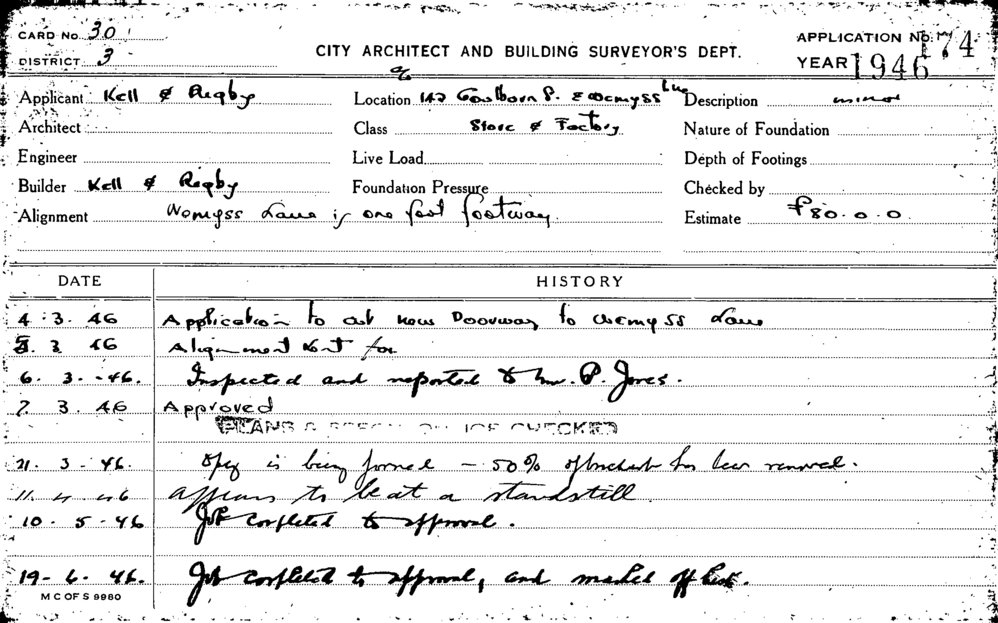 CARD No. 30
DISTRICT 3
CITY ARCHITECT AND BUILDING SURVEYOR'S DEPT.
APPLICATION No. 174
YEAR 1946
Applicant Kell & Rigby
Location 142 Goulborn S. & Wemyss Lne
Description minor
Architect
Class Store & Factory
Nature of Foundation
Engineer
Live Load
Depth of Footings
Builder Kell & Rigby
Foundation Pressure
Checked by
Alignment Wemyss Lane is one foot footway
Estimate £80.0.0
DATE HISTORY
4.3.46 Application to cut new Doorway to Wemyss Lane
5.3.46 Alignment sent for
6.3.46. Inspected and reported to Mr. P. Jones.
7.3.46 Approved
PLANS & SPECN ON ICE CHECKED
21.3.46. Opg is being formed - 50% of brickwork has been removed.
11 4 46 appears to be at a standstill
10.5.46 Job completed to approval.
19-6-46. Job completed to approval, and marked off
M C OF S 9980